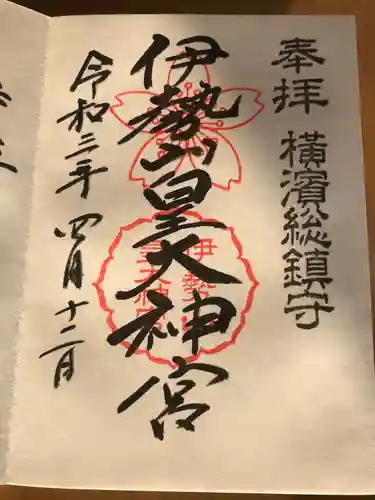 奉拝 横濱総鎮守
伊勢山皇大神宮
令和三年 四月十二日
伊勢山
皇大神宮